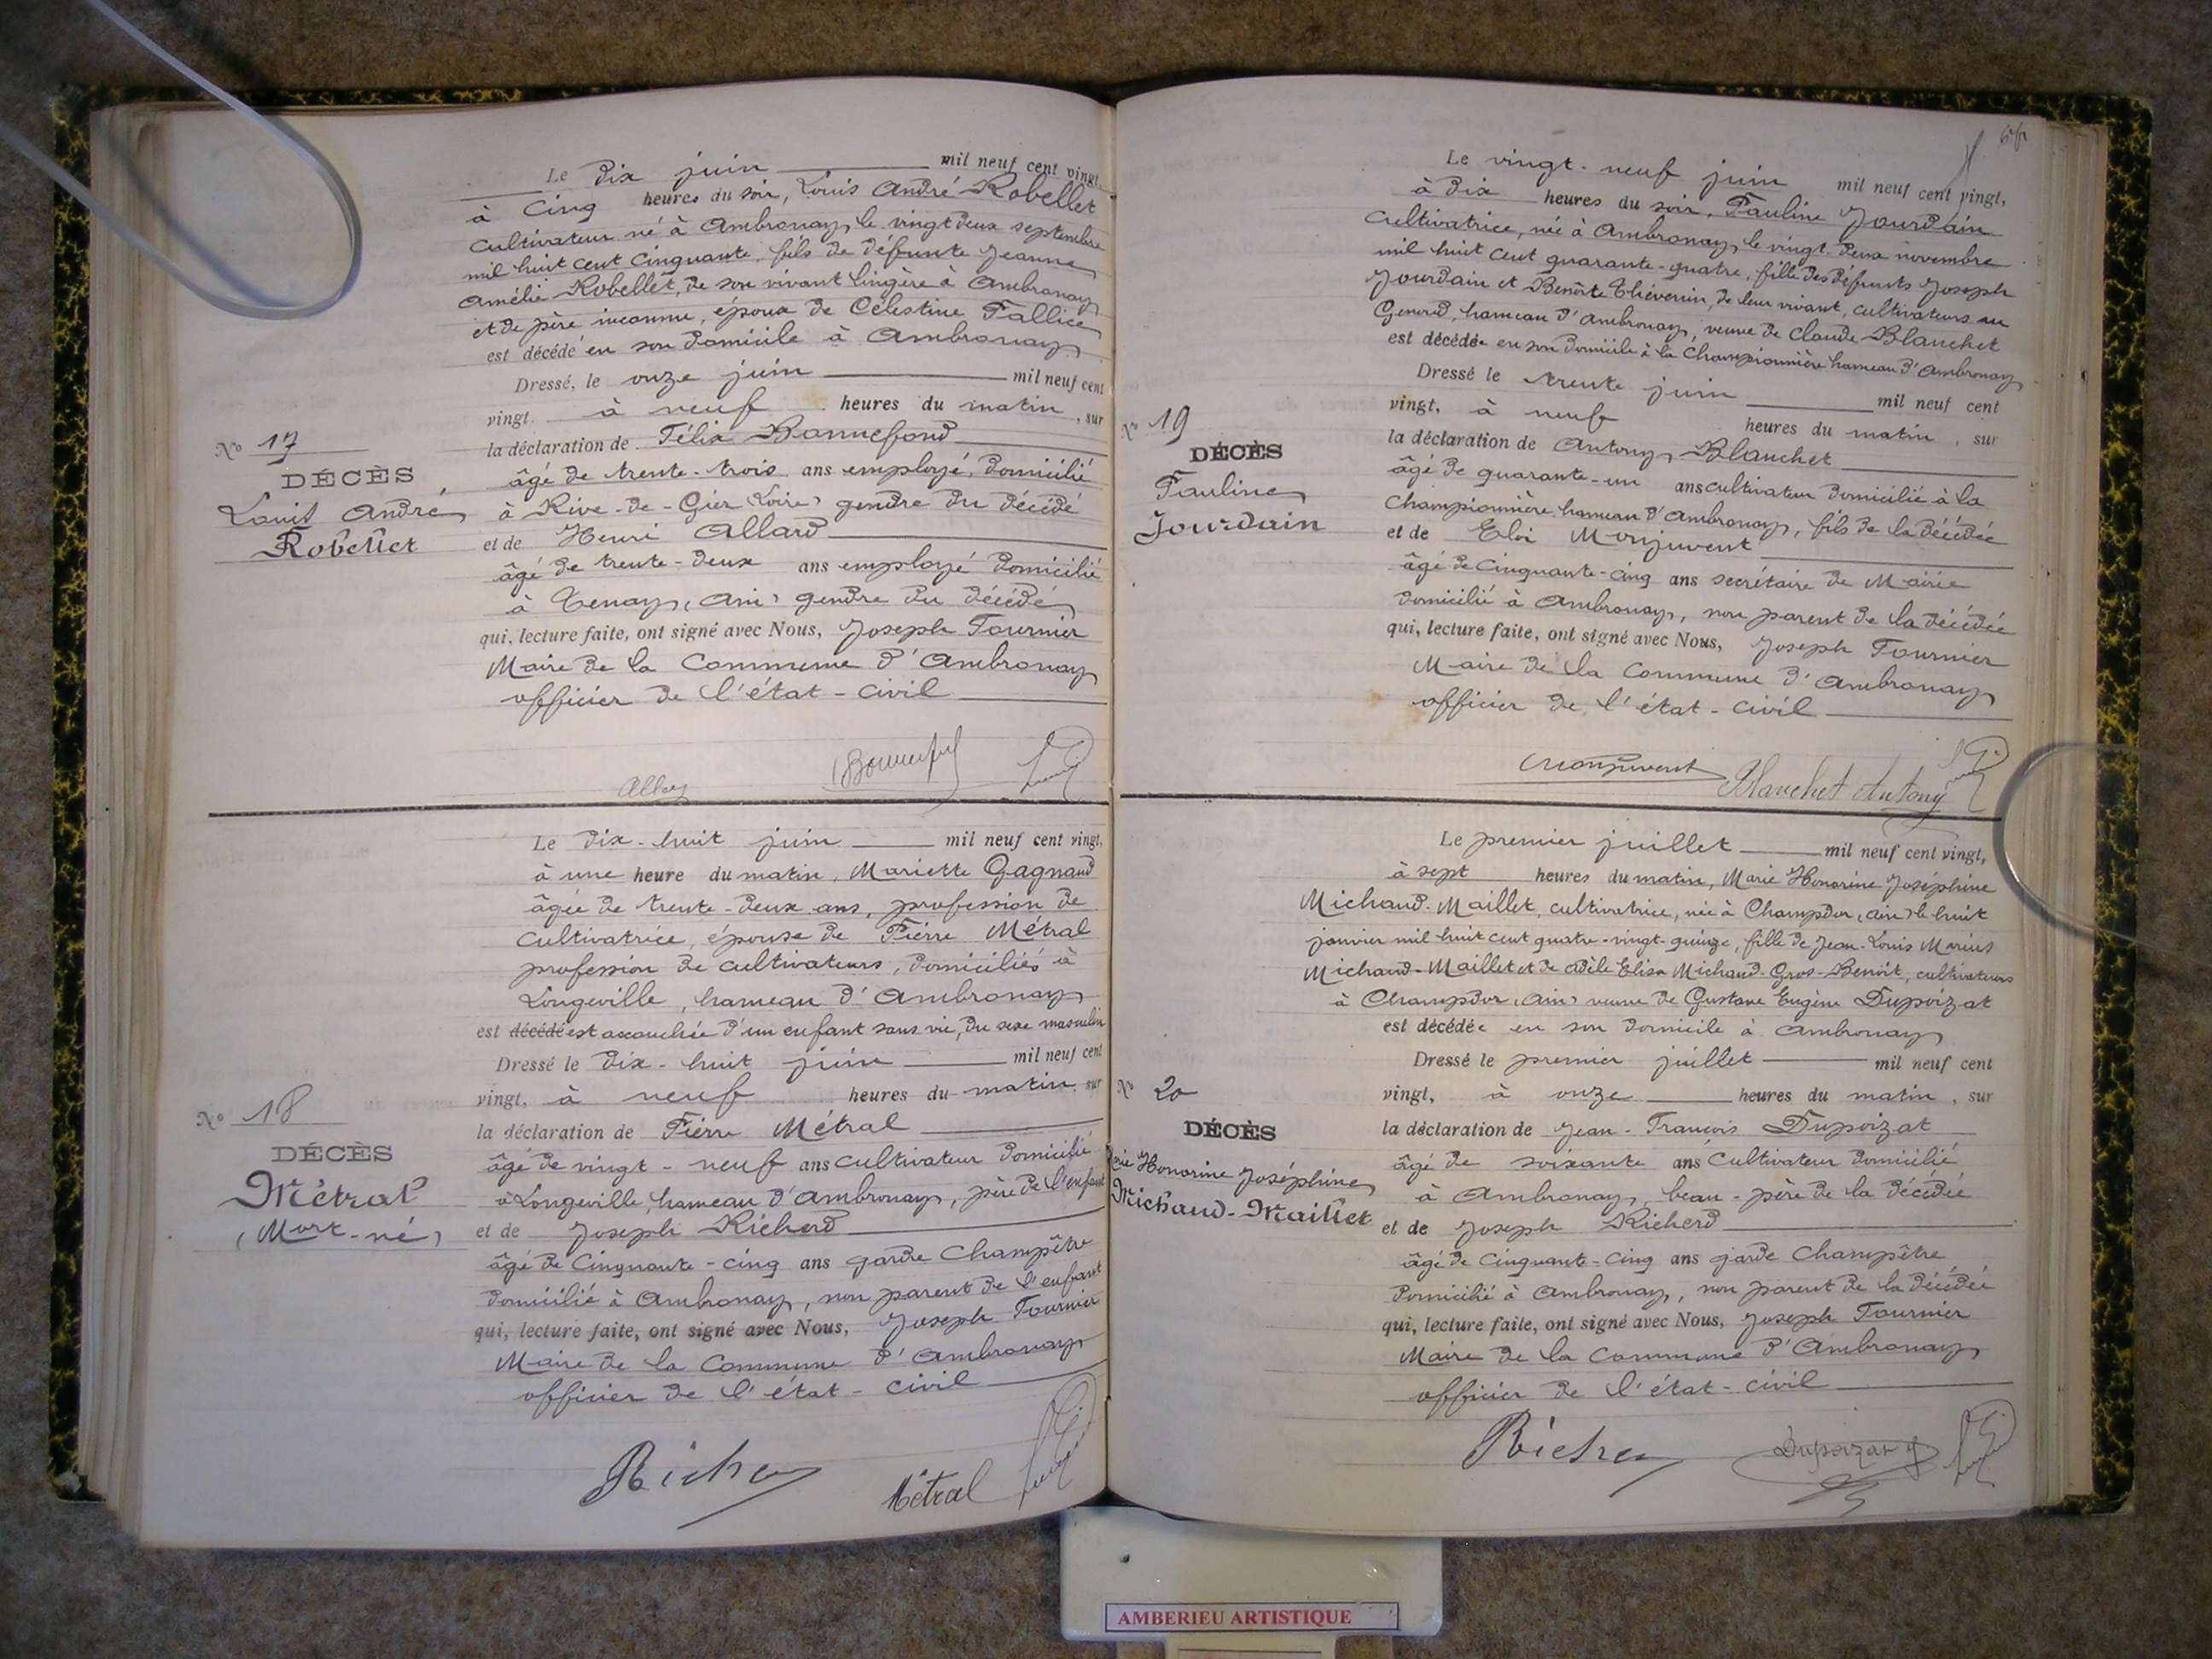 Le dix juin mil neuf cent vingt,
à cinq heures du soir, Louis André Robellet
cultivateur né à Ambronay, le vingt deux septembre
mil huit cent cinquante, fils de défunte Jeanne
Amélie Robellet, de son vivant lingère à Ambronay
et de père inconnu, époux de Célestine Fallice
est décédé en son domicile à Ambronay
Dressé, le onze juin mil neuf cent
vingt, à neuf heures du matin, sur
la déclaration de Félix Bonnefond
âgé de trente-trois ans employé, domicilié
à Rive-de-Gier (Loire) gendre du décédé
et de Henri Allard
âgé de trente-deux ans employé domicilié
à Tenay, (Ain) gendre du décédé
qui, lecture faite, ont signé avec Nous, Joseph Tournier
Maire de la Commune d'Ambronay
officier de l'état-civil
No 17
DÉCÈS
Louis André
Robellet
Le dix-huit juin mil neuf cent vingt,
à une heure du matin, Mariette Gagnaud
âgée de trente-deux ans, profession de
cultivatrice, épouse de Pierre Métral
profession de cultivateurs, domiciliés à
Longeville, hameau d'Ambronay
est décédé est accouchée d'un enfant sans vie, du sexe masculin
Dressé le dix-huit juin mil neuf cent
vingt, à neuf heures du matin, sur
la déclaration de Pierre Métral
âgé de vingt-neuf ans cultivateur domicilié
à Longeville, hameau d'Ambronay, père de l'enfant
et de Joseph Richerd
âgé de cinquante-cinq ans garde champêtre
domicilié à Ambronay, non parent de l'enfant
qui, lecture faite, ont signé avec Nous, Joseph Tournier
Maire de la Commune d'Ambronay
officier de l'état-civil
Métral
No 18
DÉCÈS
Métral
(Mort-né)
Le vingt-neuf juin mil neuf cent vingt,
à dix heures du soir, Pauline Jourdain
cultivatrice, née à Ambronay, le vingt-deux novembre
mil huit cent quarante-quatre, fille des défunts Joseph
Jourdain et Benoîte Thévenin, de leur vivant, cultivateurs au
hameau d'Ambronay, veuve de Claude Blanchet
est décédée en son domicile à la Championnière hameau d'Ambronay
Dressé le trente juin mil neuf cent
vingt, à neuf heures du matin, sur
la déclaration de Antony Blanchet
âgé de quarante-un ans cultivateur domicilié à la
Championnière hameau d'Ambronay, fils de la décédée
et de Eloi Monjuvent
âgé de cinquante-cinq ans secrétaire de Mairie
domicilié à Ambronay, non parent de la décédée
qui, lecture faite, ont signé avec Nous, Joseph Tournier
Maire de la Commune d'Ambronay
officier de l'état-civil
Monjuvent Blanchet Antony
No 19
DÉCÈS
Pauline
Jourdain
Le premier juillet mil neuf cent vingt,
à sept heures du matin, Marie Honorine Joséphine
Michaud-Maillet, cultivatrice, née à Champdor, (Ain) le huit
janvier mil huit cent quatre-vingt-quinze, fille de Jean-Louis Marius
Michaud-Maillet et de Adèle Elisa Michaud-Gros-Benoît, cultivateurs
à Champdor (Ain) veuve de Gustave Eugène Dupoizat
est décédée en son domicile à Ambronay
Dressé le premier juillet mil neuf cent
vingt, à onze heures du matin, sur
la déclaration de Jean-François Dupoizat
âgé de soixante ans cultivateur domicilié
à Ambronay, beau-père de la décédée
et de Joseph Richerd
âgé de cinquante-cinq ans garde champêtre
domicilié à Ambronay, non parent de la décédée
qui, lecture faite, ont signé avec Nous, Joseph Tournier
Maire de la Commune d'Ambronay
officier de l'état-civil
Dupoizat
No 20
DÉCÈS
Honorine Joséphine
Michaud-Maillet
AMBERIEU ARTISTIQUE